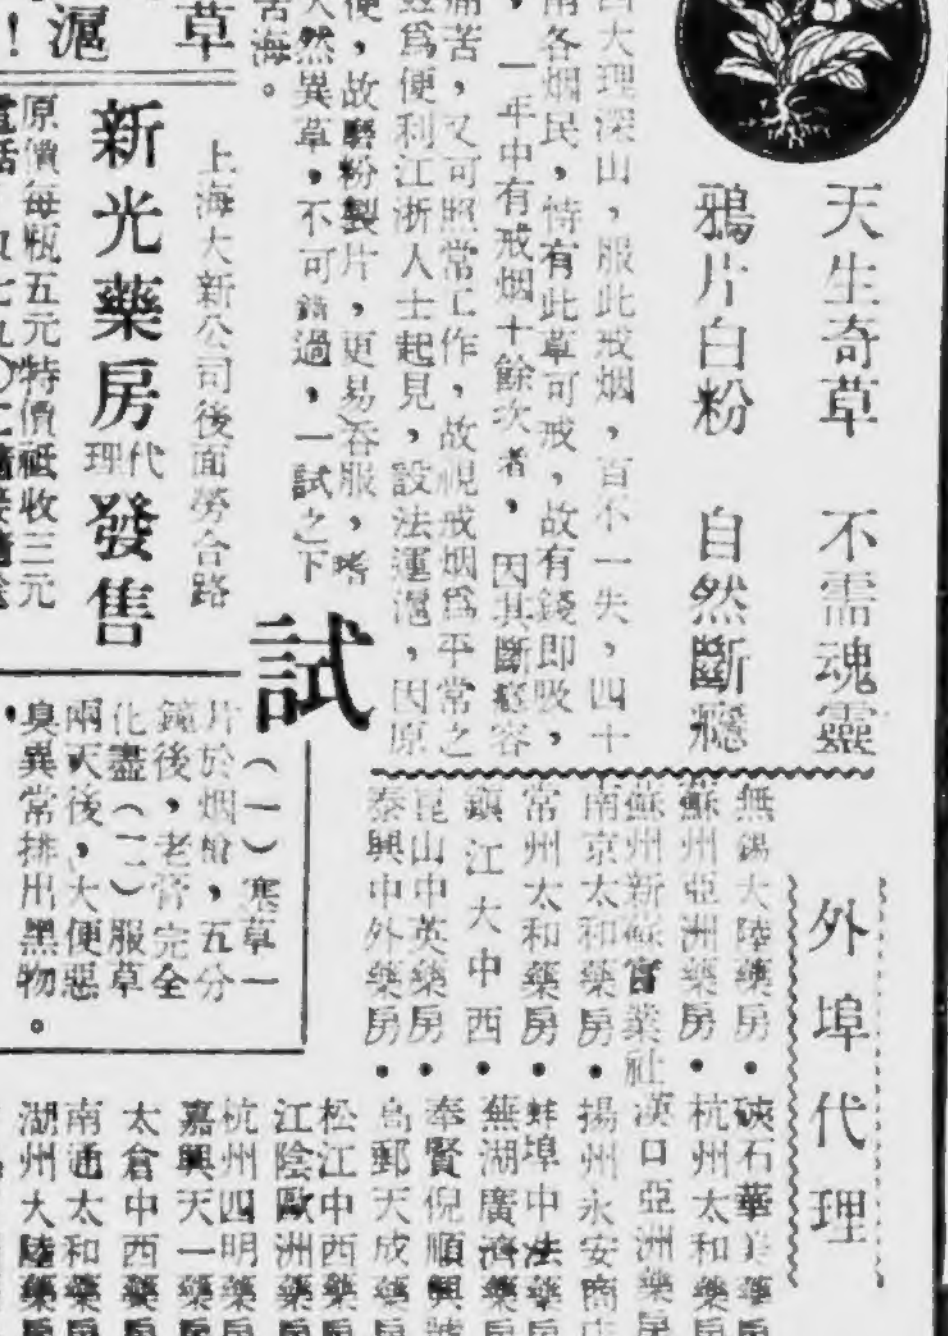 天生奇草　不需魂靈
鴉片白粉　自然斷癮
大理深山，服此戒烟，百不一失，四十
各烟民，恃有此草可戒，故有錢即吸，
，一年中有戒烟十餘次者，因其斷癮容
痛苦，又可照常工作，故視戒烟爲平常之
爲便利江浙人士起見，設法運滬，因原
便，故磨粉製片，更易吞服，嗜
天然異草，不可錯過，一試之下
苦海。
草
滬
！
上海大新公司後面勞合路
新光藥房代理發售
原價每瓶五元特價祇收三元
電話
試
（一）寒草一
片於烟槍，五分
鐘後，老膏完全
化盡（二）服草
兩天後，大便惡
臭異常排出黑物
。
外埠代理
無錫大陸藥房·硤石華美藥房
蘇州亞洲藥房·杭州太和藥房
蘇州新蘇實業社漢口亞洲藥房
南京太和藥房·揚州永安商店
常州太和藥房·蚌埠中法藥房
鎮江大中西·蕪湖廣濟藥房
崑山中英藥房·奉賢倪順興號
泰興中外藥房·高郵天成藥
松江中西藥房
江陰歐洲藥房
杭州四明藥房
嘉興天一藥房
太倉中西藥房
南通太和藥房
湖州大陸藥房